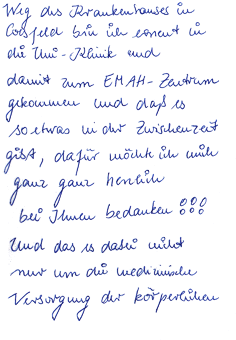 Weg des Krankenhauses in
Coesfeld bin ich erneut in
die Uni-Klinik und
damit zum EMAH-Zentrum
gekommen und daß es
so etwas in der Zwischenzeit
gibt, dafür möchte ich mich
ganz ganz herzlich
bei Ihnen bedanken !!!
Und das es dabei nicht
nur um die medizinische
Versorgung der körperlichen